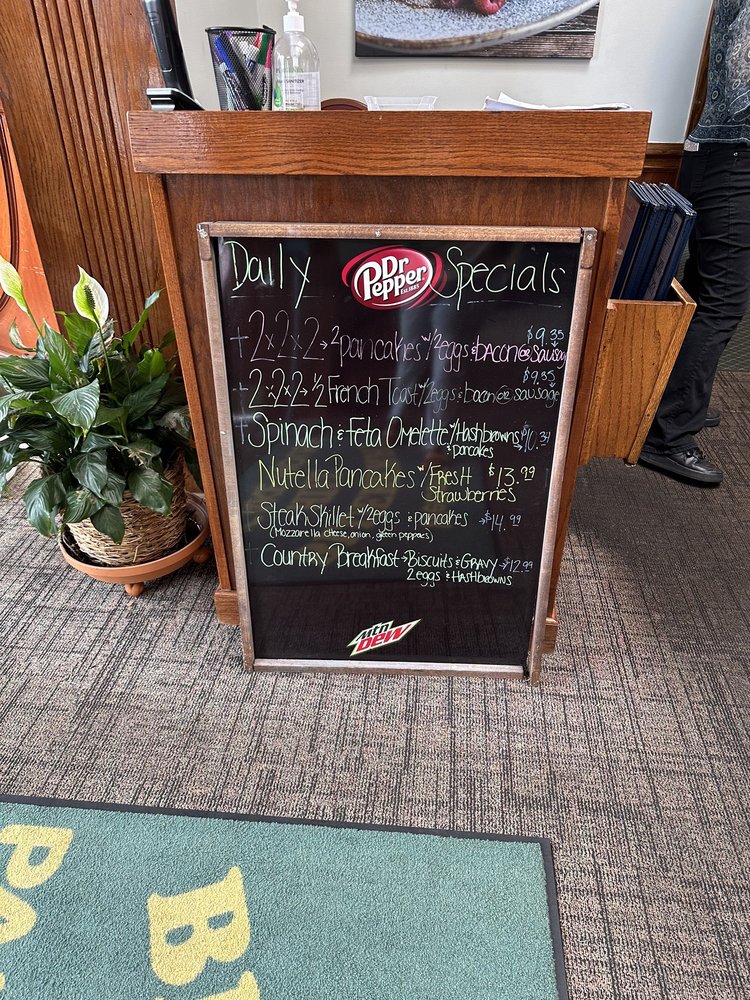 SANITIZER
Daily Dr Pepper EST. 1885 Specials
$9.35
+ 2x2x2 → 2 pancakes w/ 2eggs & bacon or sausage
$9.35
+ 2x2x2 → 1/2 French Toast w/ 2eggs & bacon or sausage
+ Spinach & Feta Omelette w/ Hashbrowns → $10.34
& pancakes
Nutella Pancakes w/ Fresh $13.99
Strawberries
Steak Skillet w/ 2eggs & pancakes → $14.99
(Mozzarella cheese, onion, green peppers)
Country Breakfast → Biscuits & Gravy → $12.99
2eggs & Hashbrowns
Mtn
DEW
P
PA
B